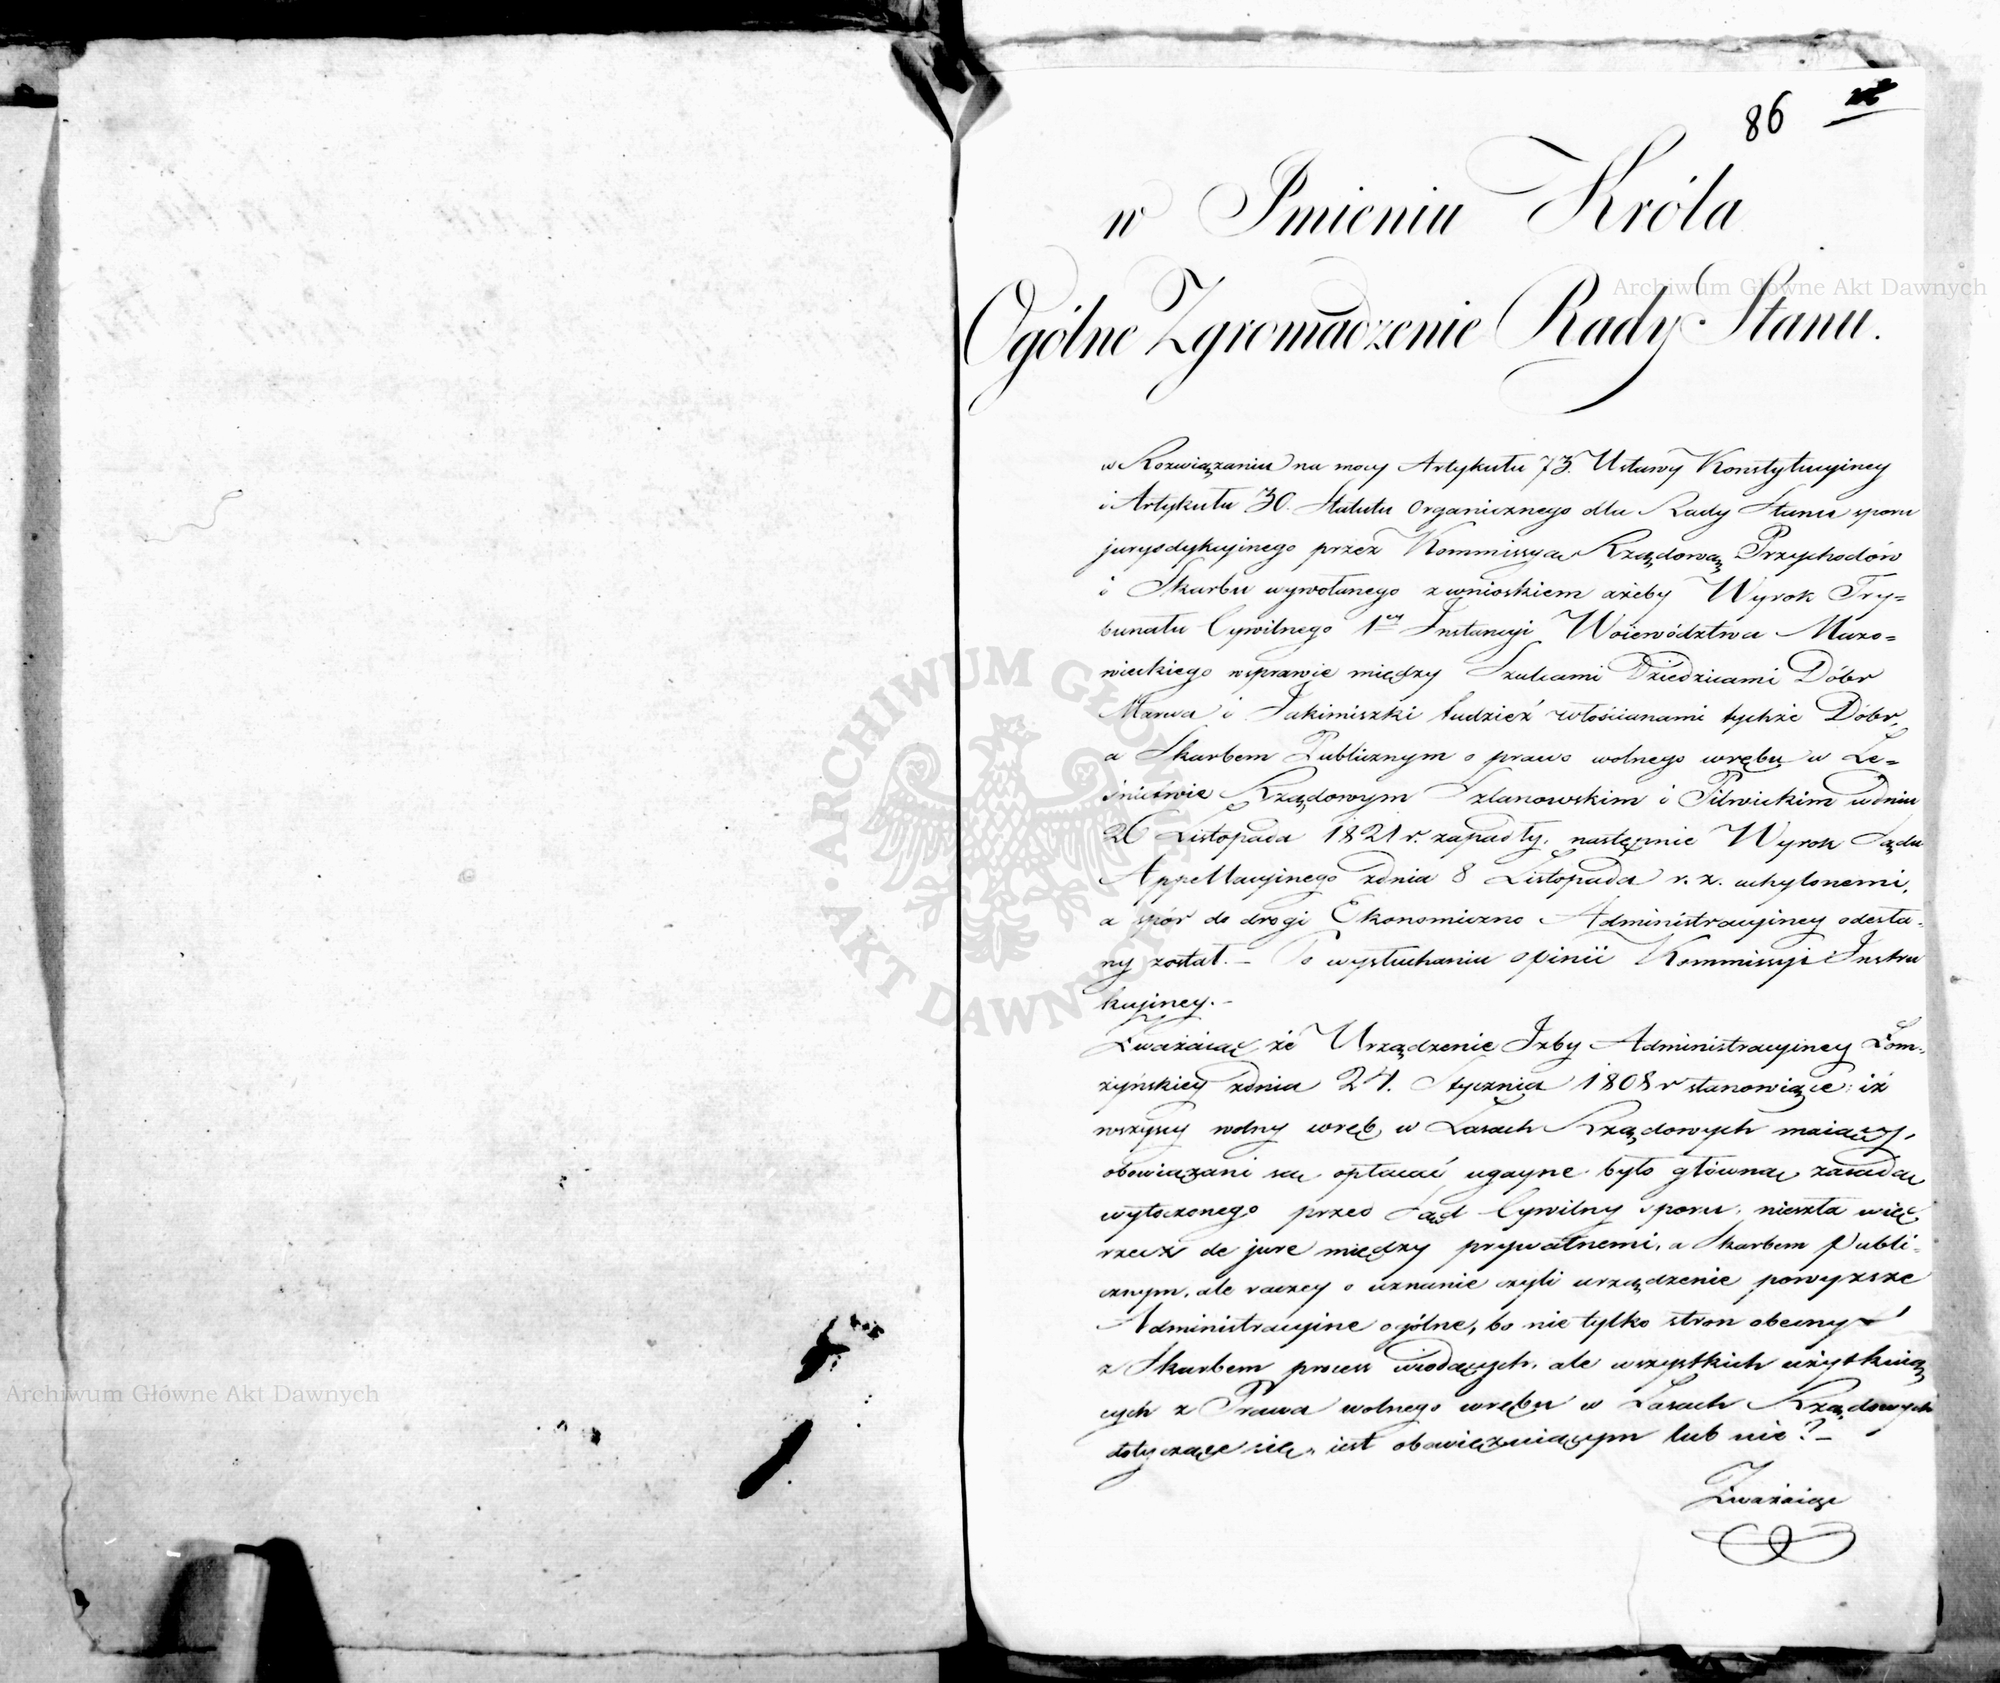 86
w Imieniu Króla
Ogólne Zgromadzenie Rady Stanu.
w Rozwiązaniu na mocy Artykułu 73. Ustawy Konstytucyiney
i Artykułu 30. Statutu Organicznego dla Rady Stanu sporu
jurysdykcyinego przez Kommissyą Rządową Przychodów
i Skarbu wywołanego z wnioskiem ażeby Wyrok Try=
bunału Cywilnego 1ey Instancyi Woiewództwa Mazo=
wieckiego w sprawie między Szulcami Dziedzicami Dóbr
i Jakimiszki tudzież włościanami tychże Dóbr,
a Skarbem Publicznym o prawo wolnego wrębu w Le=
śnictwie Rządowym Szlanowskim i Pilwickim w dniu
26 Listopada 1821 r. zapadły, następnie Wyrok Sądu
Appellacyinego z dnia 8 Listopada r. z. uchylonemi,
a spór do drogi Ekonomiczno Administracyiney odesła-
ny został. – Po wysłuchaniu opinii Kommissyi Instru
kcyiney. –
Zważaiąc że Urządzenie Izby Administracyiney Łom-
żyńskiey z dnia 24. Stycznia 1808 r stanowiące: iż
wszyscy wolny wręb w Lasach Rządowych maiący,
obowiązani są opłacać ugayne było główną zasadą
wytoczonego przed Sąd Cywilny sporu, nieszła więc
rzecz de jure między prywatnemi, a Skarbem Publi-
cznym, ale raczey o uznanie czyli urządzenie powyższe
Administracyine ogólne, bo nie tylko stron obecnych
z Skarbem process wiodących, ale wszystkich użytkuią
cych z Prawa wolnego wrębu w Lasach Rządowych
dotyczące się, iest obowięzuiącym lub nie? –
Zważaiąc
Archiwum Główne Akt Dawnych
Archiwum Główne Akt Dawnych
ARCHIWUM GŁÓWNE · AKT DAWNYCH ·